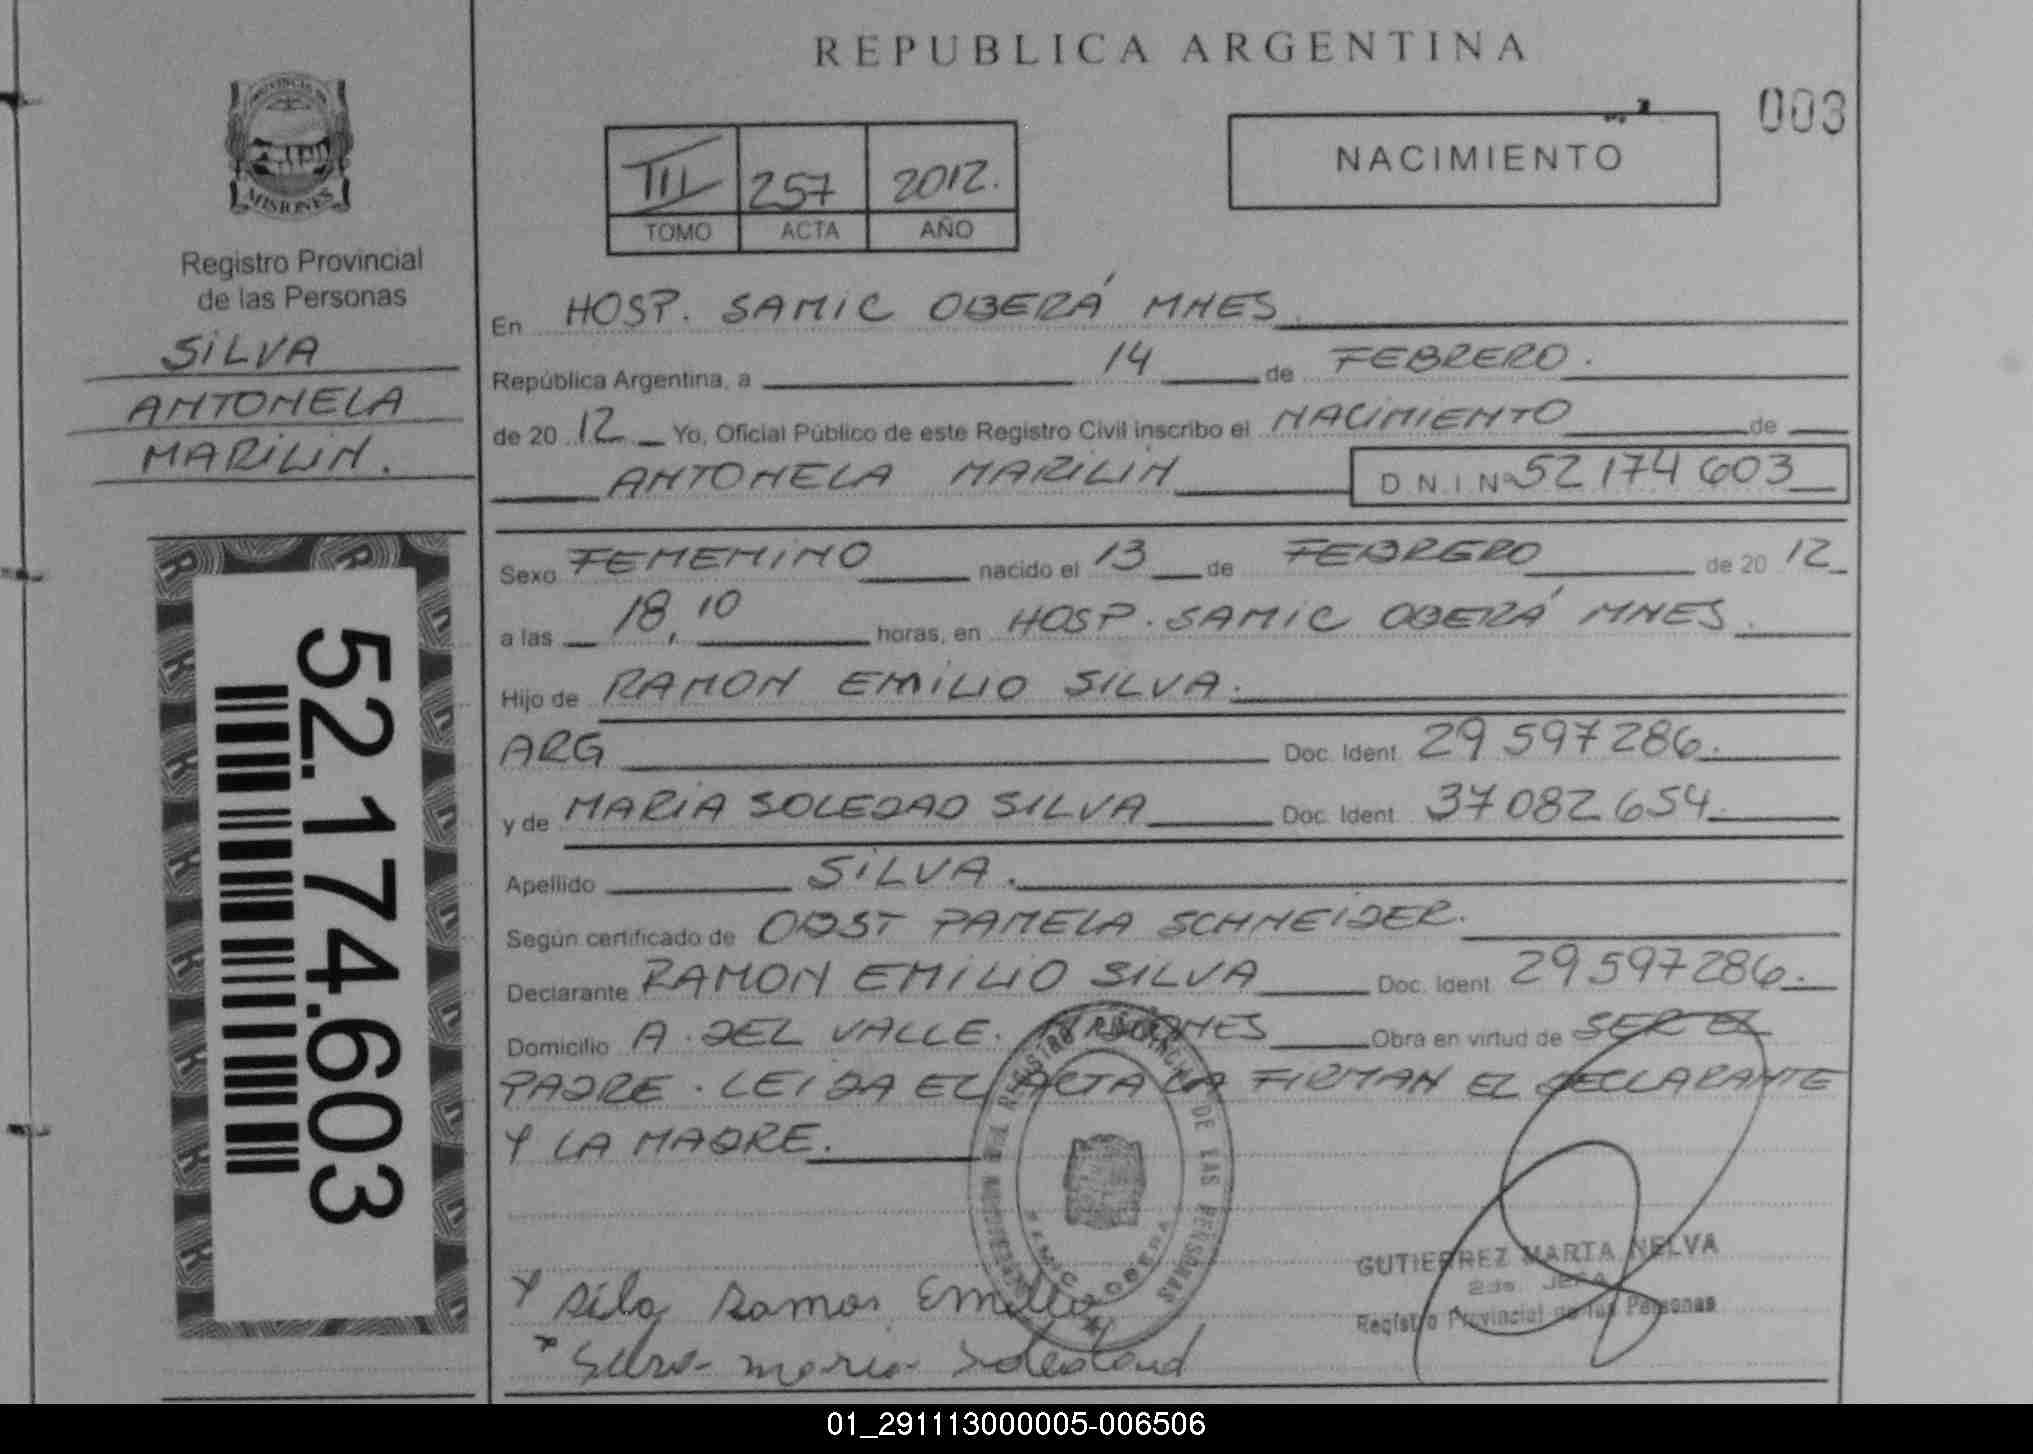 REPUBLICA ARGENTINA
003
NACIMIENTO
III 257 2012.
TOMO ACTA AÑO
MISIONES
Registro Provincial
de las Personas
SILVA
ANTONELA
MARILIN.
52.174.603
En HOSP. SAMIC OBERÁ MNES
República Argentina, a 14 de FEBRERO.
de 20 12 Yo, Oficial Público de este Registro Civil inscribo el NACIMIENTO de
ANTONELA MARILIN D N I Nº 52 174 603
Sexo FEMENINO nacido el 13 de FEBRERO de 20 12
a las 18,10 horas, en HOSP. SAMIC OBERÁ MNES.
Hijo de RAMON EMILIO SILVA.
ARG Doc. Ident. 29 597 286.
y de MARIA SOLEDAD SILVA Doc. Ident. 37 082 654.
Apellido SILVA.
Según certificado de OBST PAMELA SCHNEIDER.
Declarante RAMON EMILIO SILVA Doc. Ident. 29 597 286.
Domicilio A. DEL VALLE. MISIONES Obra en virtud de SER EL
PADRE. LEIDA EL ACTA LA FIRMAN EL DECLARANTE
Y LA MADRE.
REGISTRO PROVINCIAL DE LAS PERSONAS
SAMIC OBERA
GUTIERREZ MARTA NELVA
2da. JEFA
Registro Provincial de las Personas
Silva Ramon Emilio
Silva maria Soledad
01_291113000005-006506